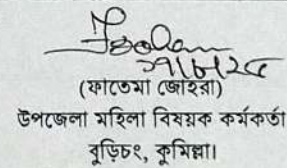 (ফাতেমা জোহরা)
উপজেলা মহিলা বিষয়ক কর্মকর্তা
বুড়িচং, কুমিল্লা।